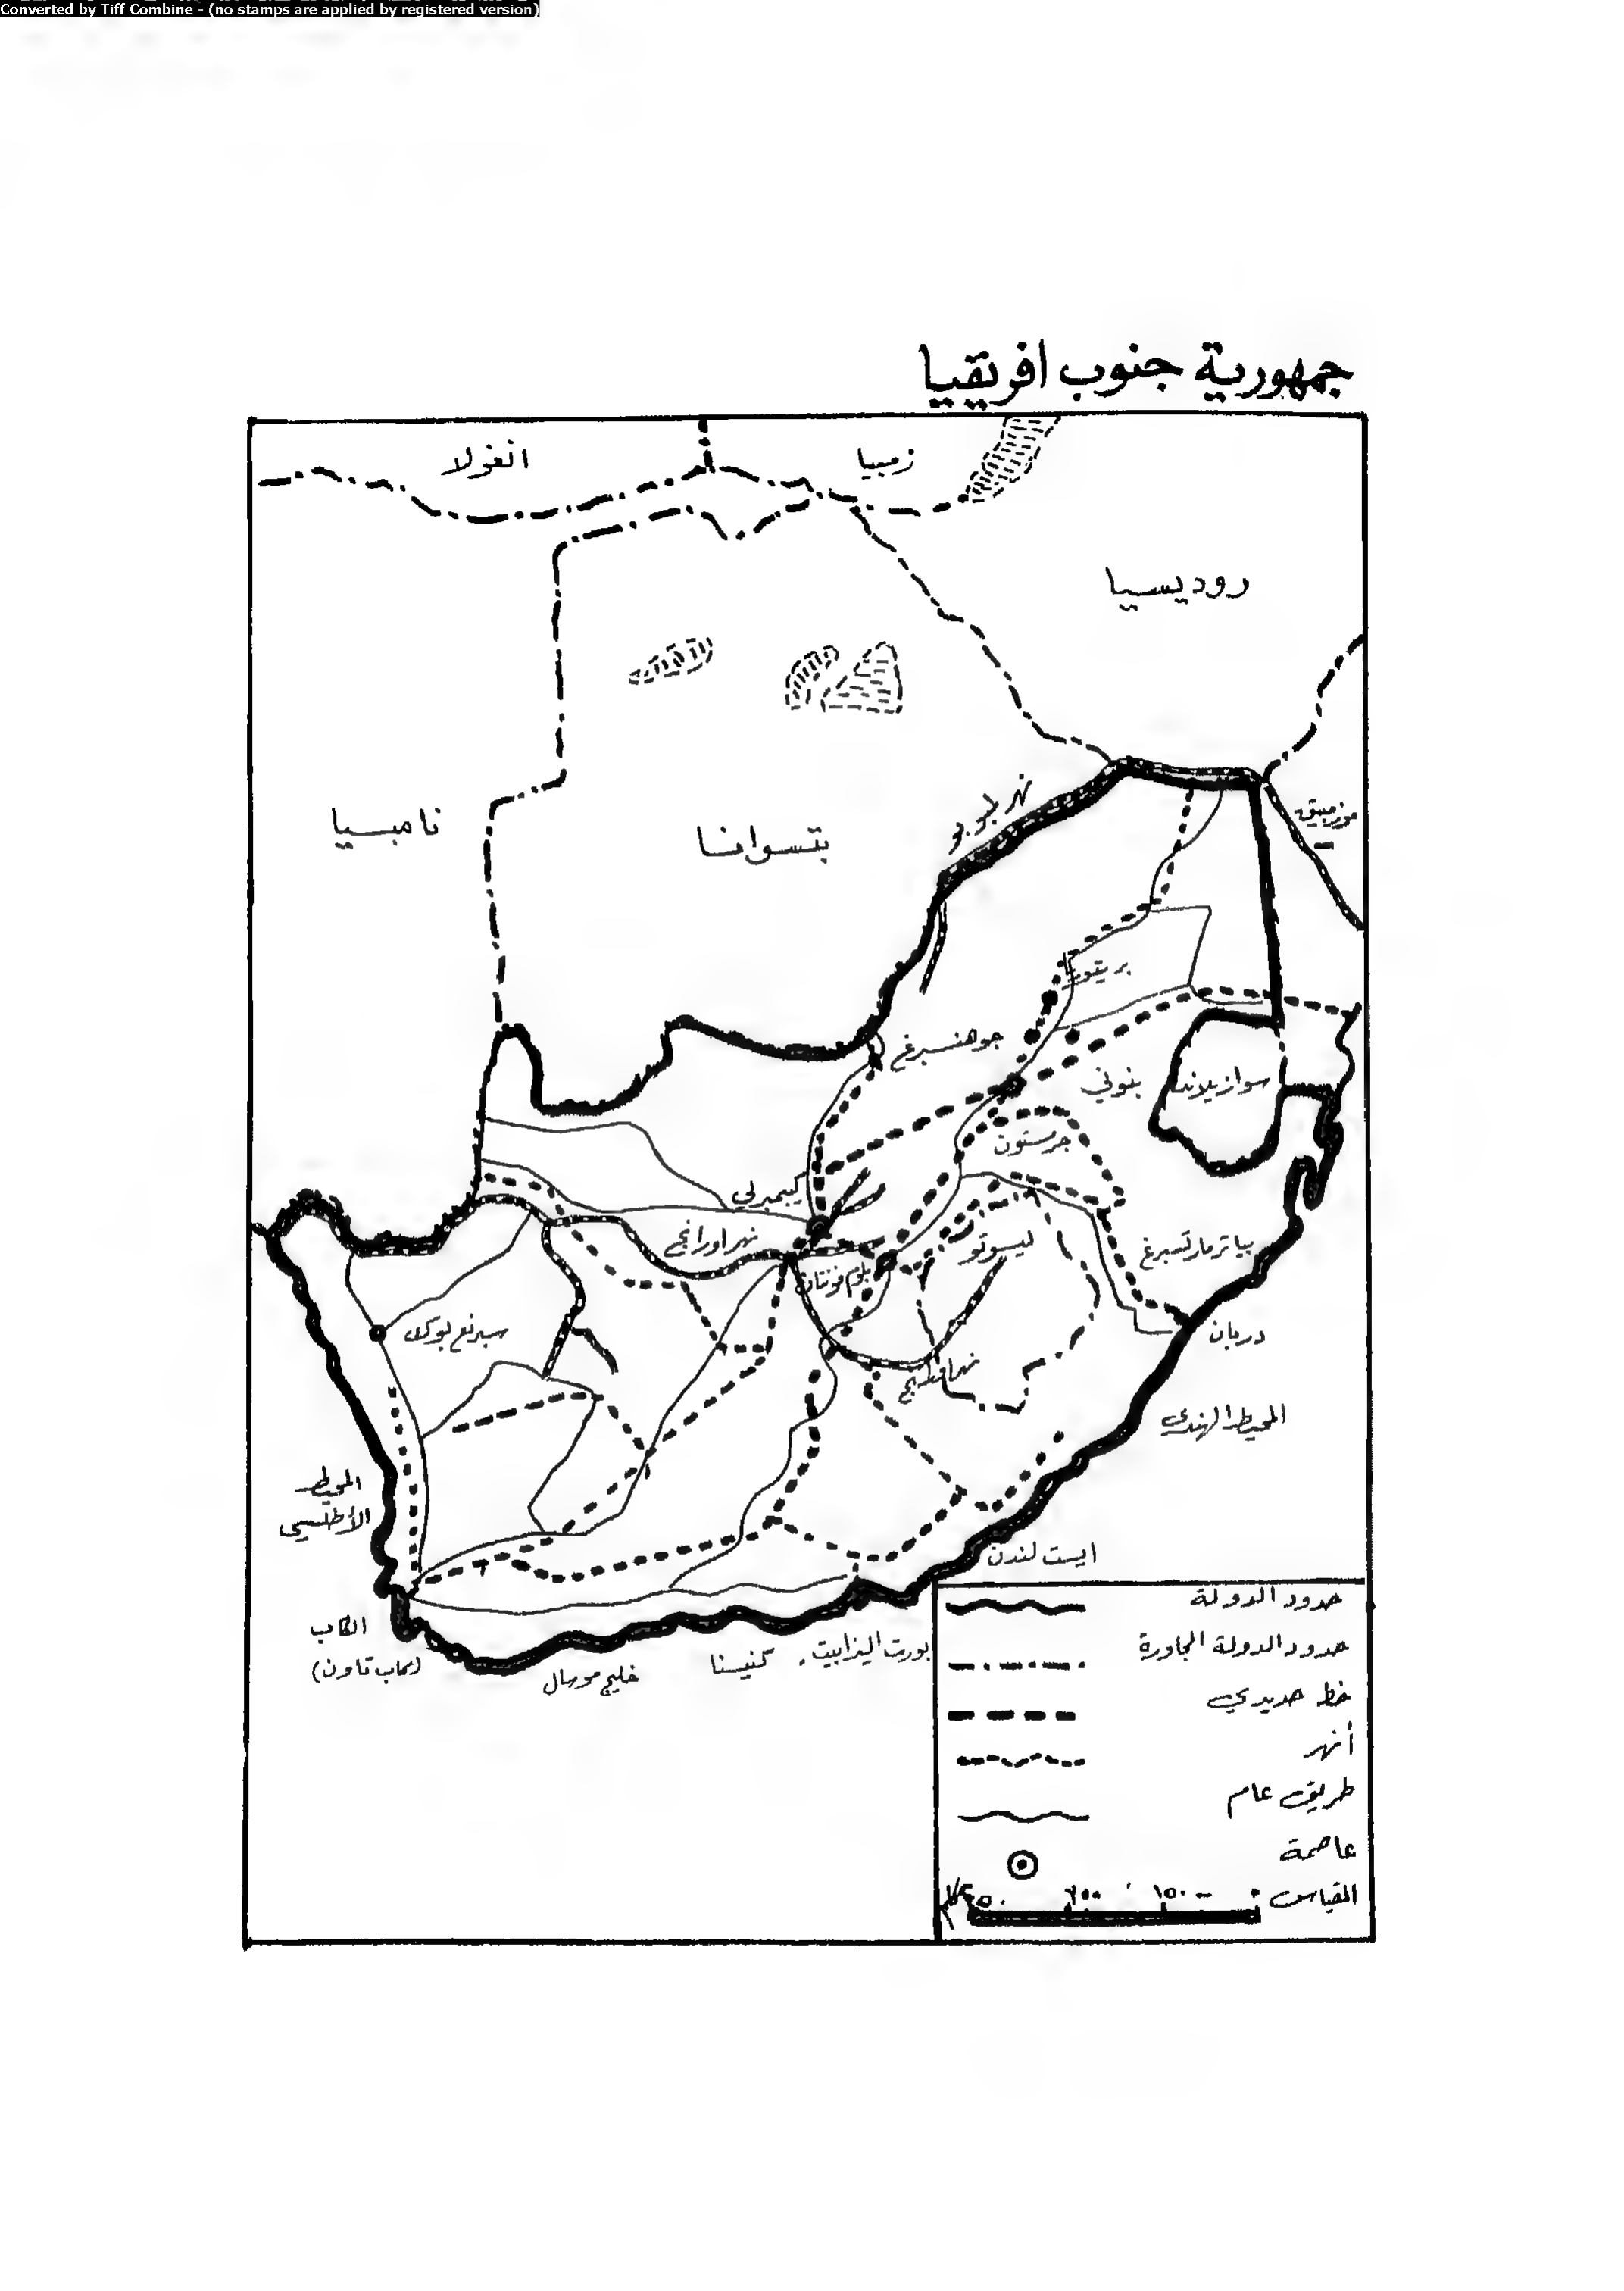 Converted by Tiff Combine - (no stamps are applied by registered version)
جمهورية جنوب افريقيا
انغولا
زمبيا
روديسيا
نامبسيا
بتسوانا
نهر لمبوبو
موزمبيق
بريتوريا
جوهنسبرغ
بنوني
سوازيلاند
جرمستون
كيمبرلي
نهر اورانج
بلوم فونتان
ليسوتو
بياترمارتسبرغ
سبرنغ بوك
دربان
نهر اورانج
المحيط الهندي
المحيط
الأطلسي
ايست لندن
الكاب
(كاب تاون)
خليج موسال
كنيسنا
بورت اليزابيت
حدود الدولة
حدود الدولة المجاورة
خط حديدي
أنهر
طريق عام
عاصمة
القياس ٠ ١٥٠ ٣٠٠ ٤٥٠ كلم